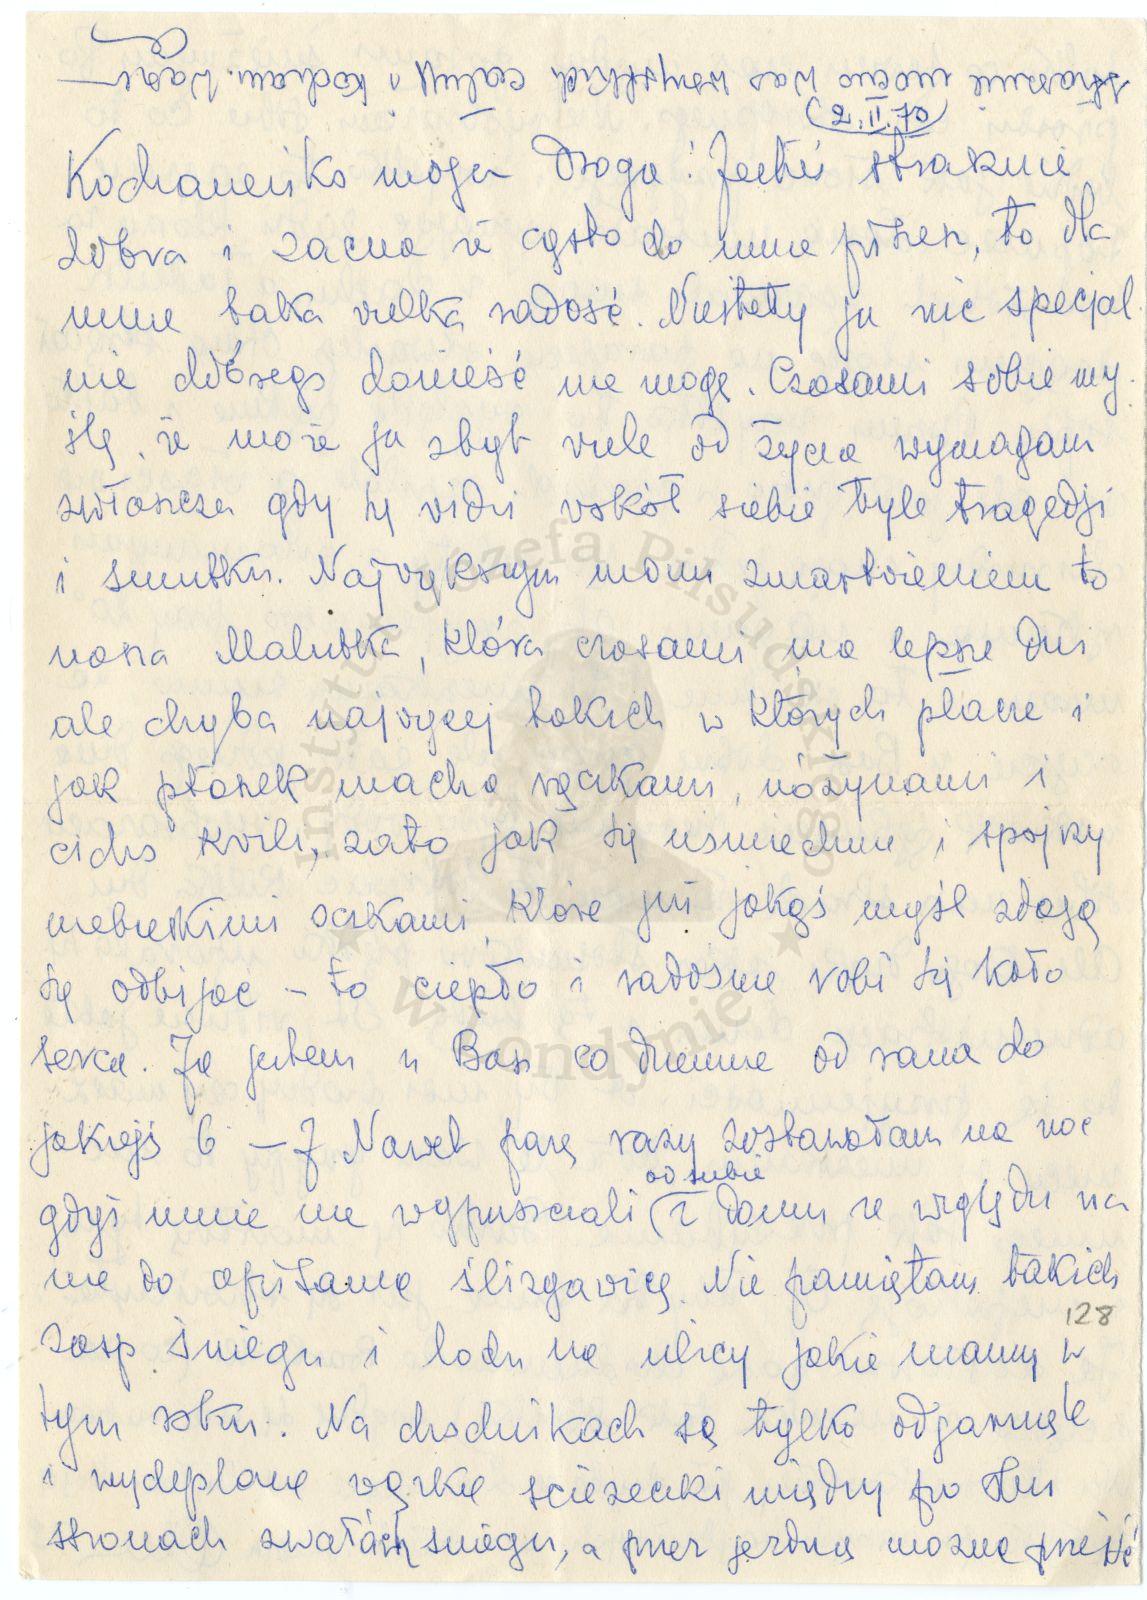 strasznie mocno Was wszystkich całuję i kocham. Wasza
(2.II.70)
Kochaneńko moja Droga! Jesteś strasznie
dobra i zacna że często do mnie piszesz, to dla
mnie taka wielka radość. Niestety ja nic specjal
nie dobrego donieść nie mogę. Czasami sobie my
ślę, że może ja zbyt wiele od życia wymagam
zwłaszcza gdy się widzi wokół siebie tyle tragedji
i smutku. Największym moim zmartwieniem to
nasza Malutka, która czasami ma lepsze dni
ale chyba najwięcej takich w których płacze i
jak ptaszek macha rączkami, nóżynami i
cicho kwili, zato jak się uśmiechnie i spojrzy
niebieskimi oczkami, które już jakąś myśl zdają
się odbijać – to ciepło i radośnie robi się koło
serca. Ja jestem u Basi codziennie od rana do
jakiejś 6 – 7. Nawet parę razy zostawałam na noc
gdyż mnie nie wypuszczali (od siebie
z domu ze względu na
nie do opisania ślizgawicę. Nie pamiętam takich
128
zasp śniegu i lodu na ulicy jakie mamy w
tym roku. Na chodnikach są tylko odgarnięte
i wydeptane wąskie ścieżeczki między po obu
stronach zwałach śniegu, a przez jezdnię można przejść
Instytut Józefa Piłsudskiego
w Londynie